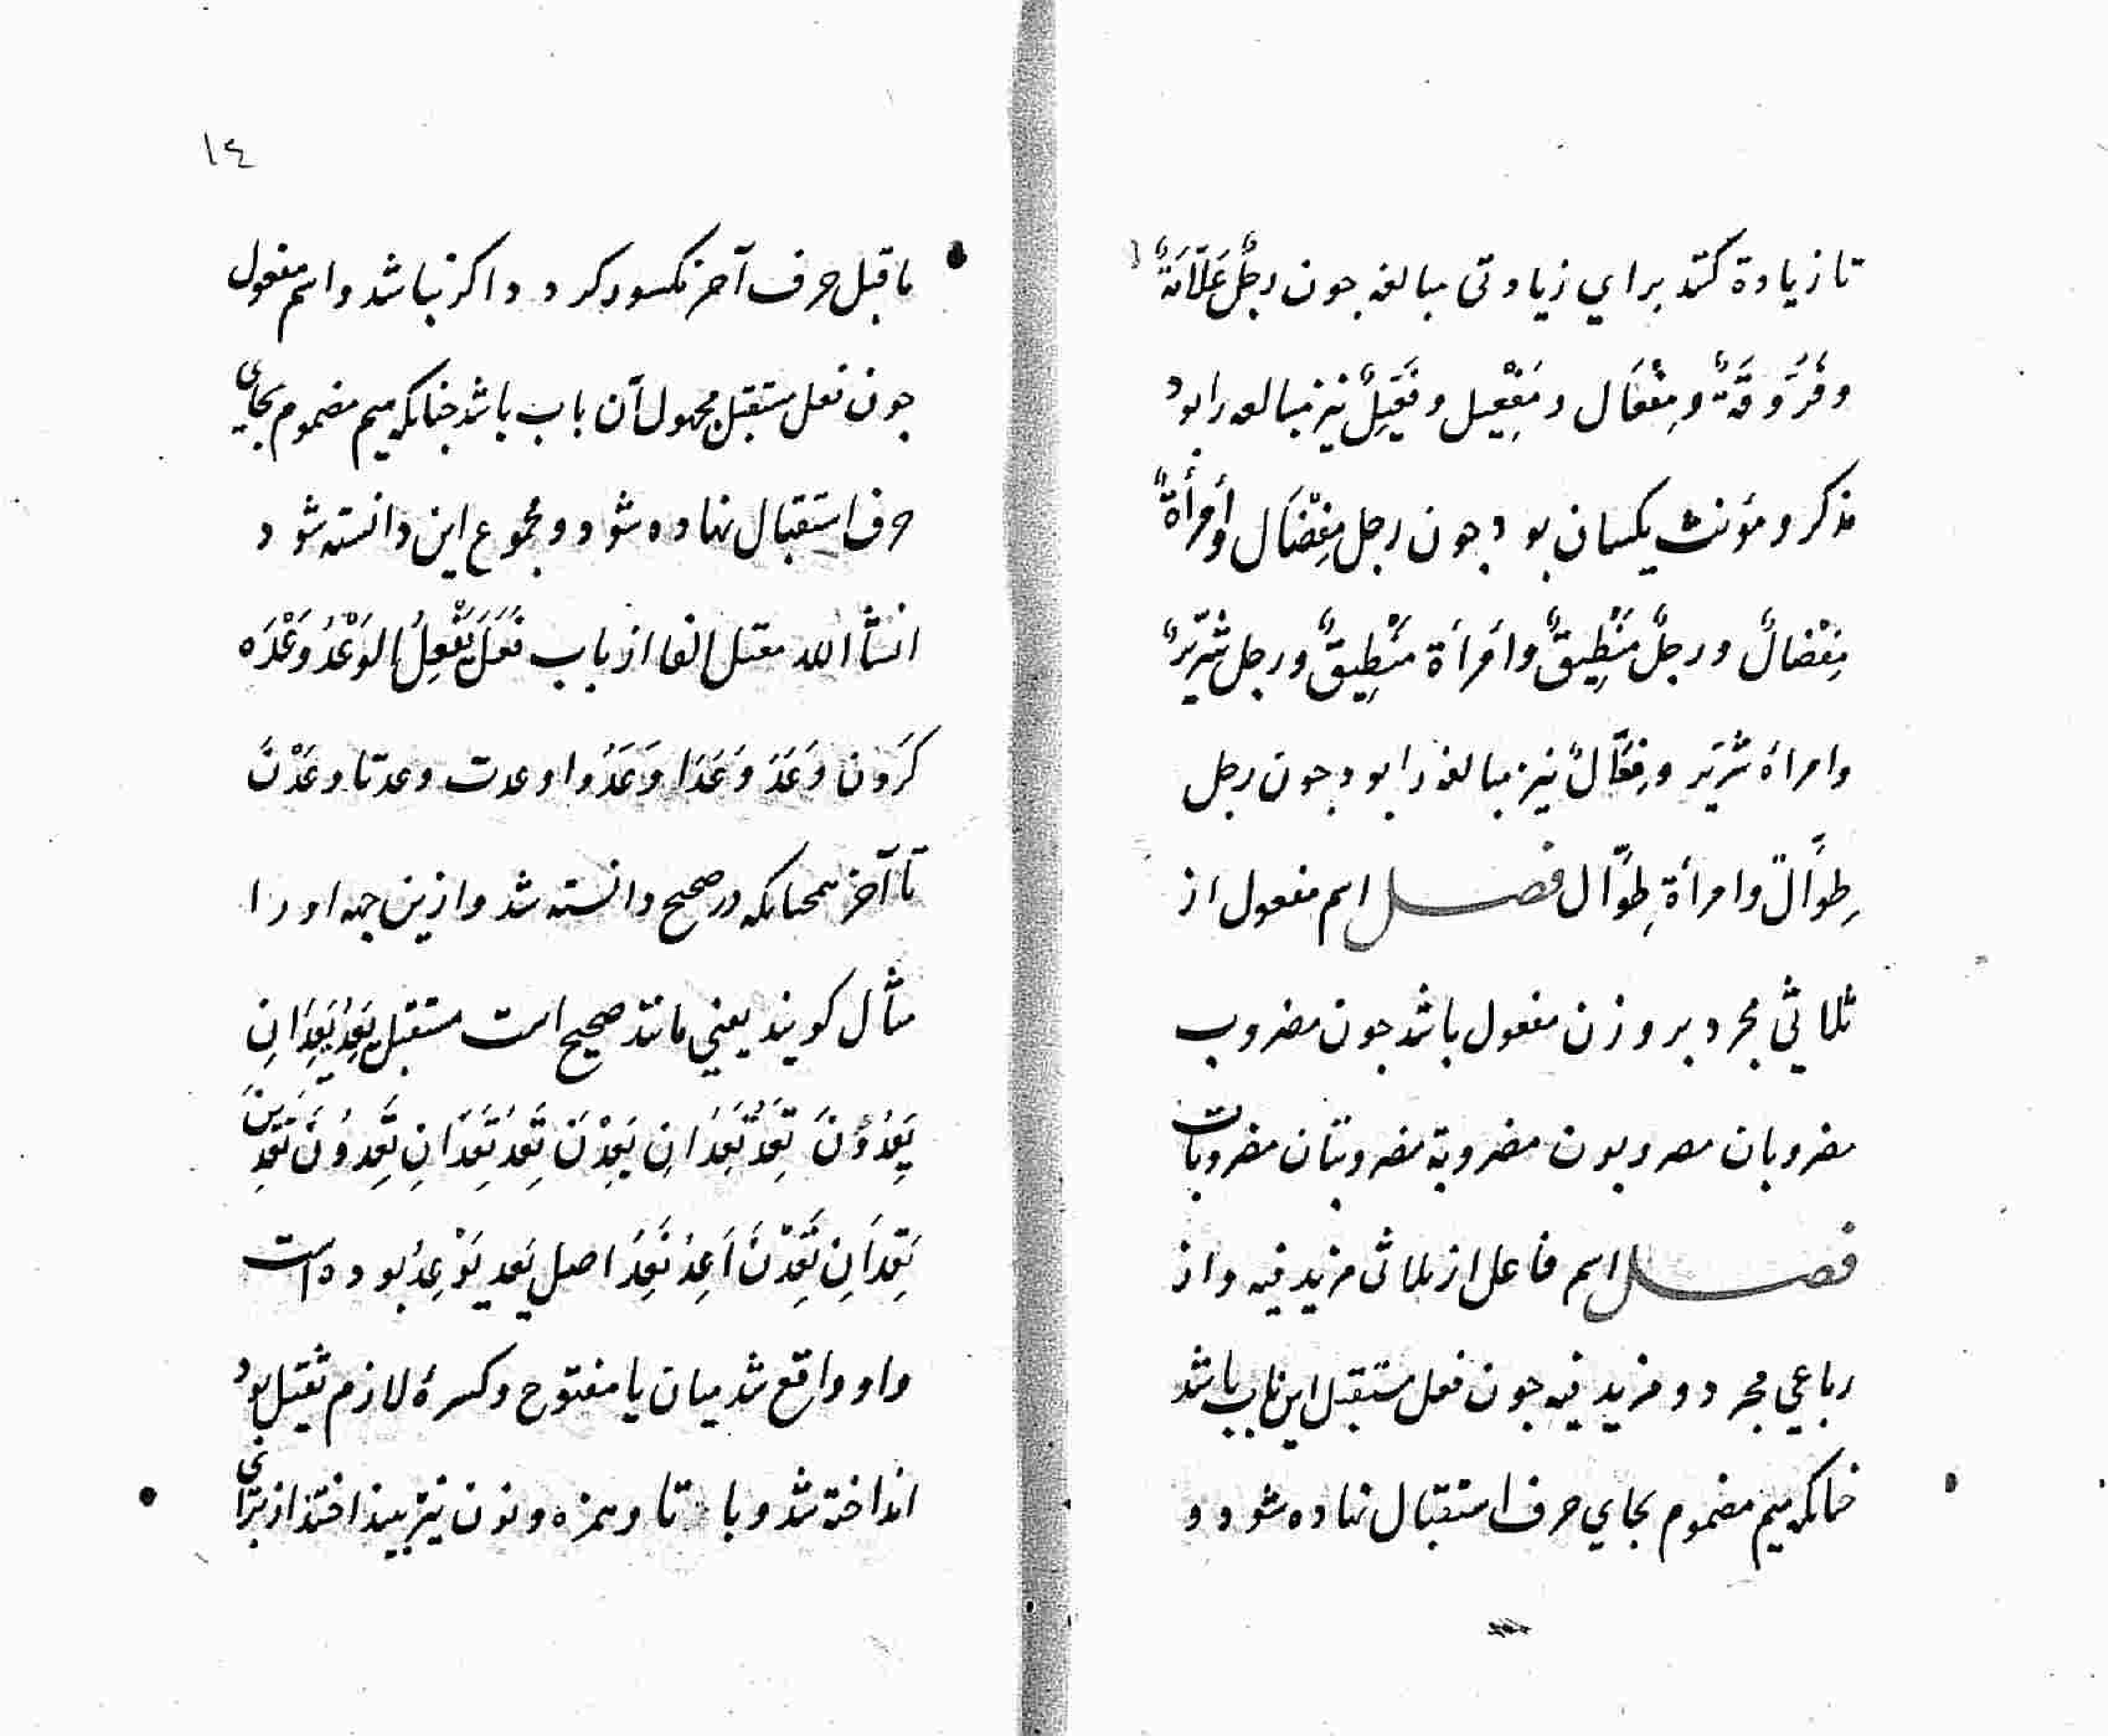 تا زیادة کنند برای زیادتی مبالغه جون رجلٌ عَلّامَةٌ
وفَرُوقَةٌ ومِفْعَال ومِفْعِیل وفِعِّیلٌ نیز مبالغه را بود
مذکر و مؤنث یکسان بود جون رجل مِفْضَال وأمرأةٌ
مِفْضالٌ ورجلٌ مِنْطِیقٌ وأمرأة مِنْطِیقٌ ورجل شِرِّیرٌ
وامراة شریر وفعّالٌ نیز مبالغه را بود جون رجل
طِوَّال وامرأة طِوَّال فصل اسم مفعول از
ثلاثی مجرد بر وزن مفعول باشد جون مضروب
مضروبان مضروبون مضروبة مضروبتان مضروبات
فصل اسم فاعل از ثلاثی مزید فیه و از
رباعی مجرد و مزید فیه جون فعل مستقبل این باب باشد
جنانکه میم مضموم بجای حرف استقبال نهاده شود و
١٤
ما قبل حرف آخر مکسور کردد اکر نباشد واسم مفعول
جون فعل مستقبل مجهول آن باب باشد جنانکه میم مضموم بجای
حرف استقبال نهاده شود و مجموع این دانسته شود
انشاء الله معتل الفا از باب فَعَلَ یَفْعِلُ الوَعْدُ وَعْدَه
کَردن وَعَدَ وَعَدَا وَعَدُوا وعدت وعدتا وعَدْنَ
تا آخر همجنانکه در صحیح دانسته شد و ازین جهه او را
مثال کویند یعنی مانند صحیح است مستقبل یَعِدُ یَعِدَانِ
یَعِدُونَ تَعِدُ تَعِدَانِ یَعِدْنَ تَعِدُ تَعِدَانِ تَعِدُونَ تَعِدِینَ
تَعِدَانِ تَعِدْنَ اَعِدُ نَعِدُ اصل یَعد یَوْعِدُ بوده است
واو واقع شد میان یا مفتوح و کسرهٔ لازم ثقیل بود
انداخته شد و با تا و همزه و نون نیز بینداختند از برای